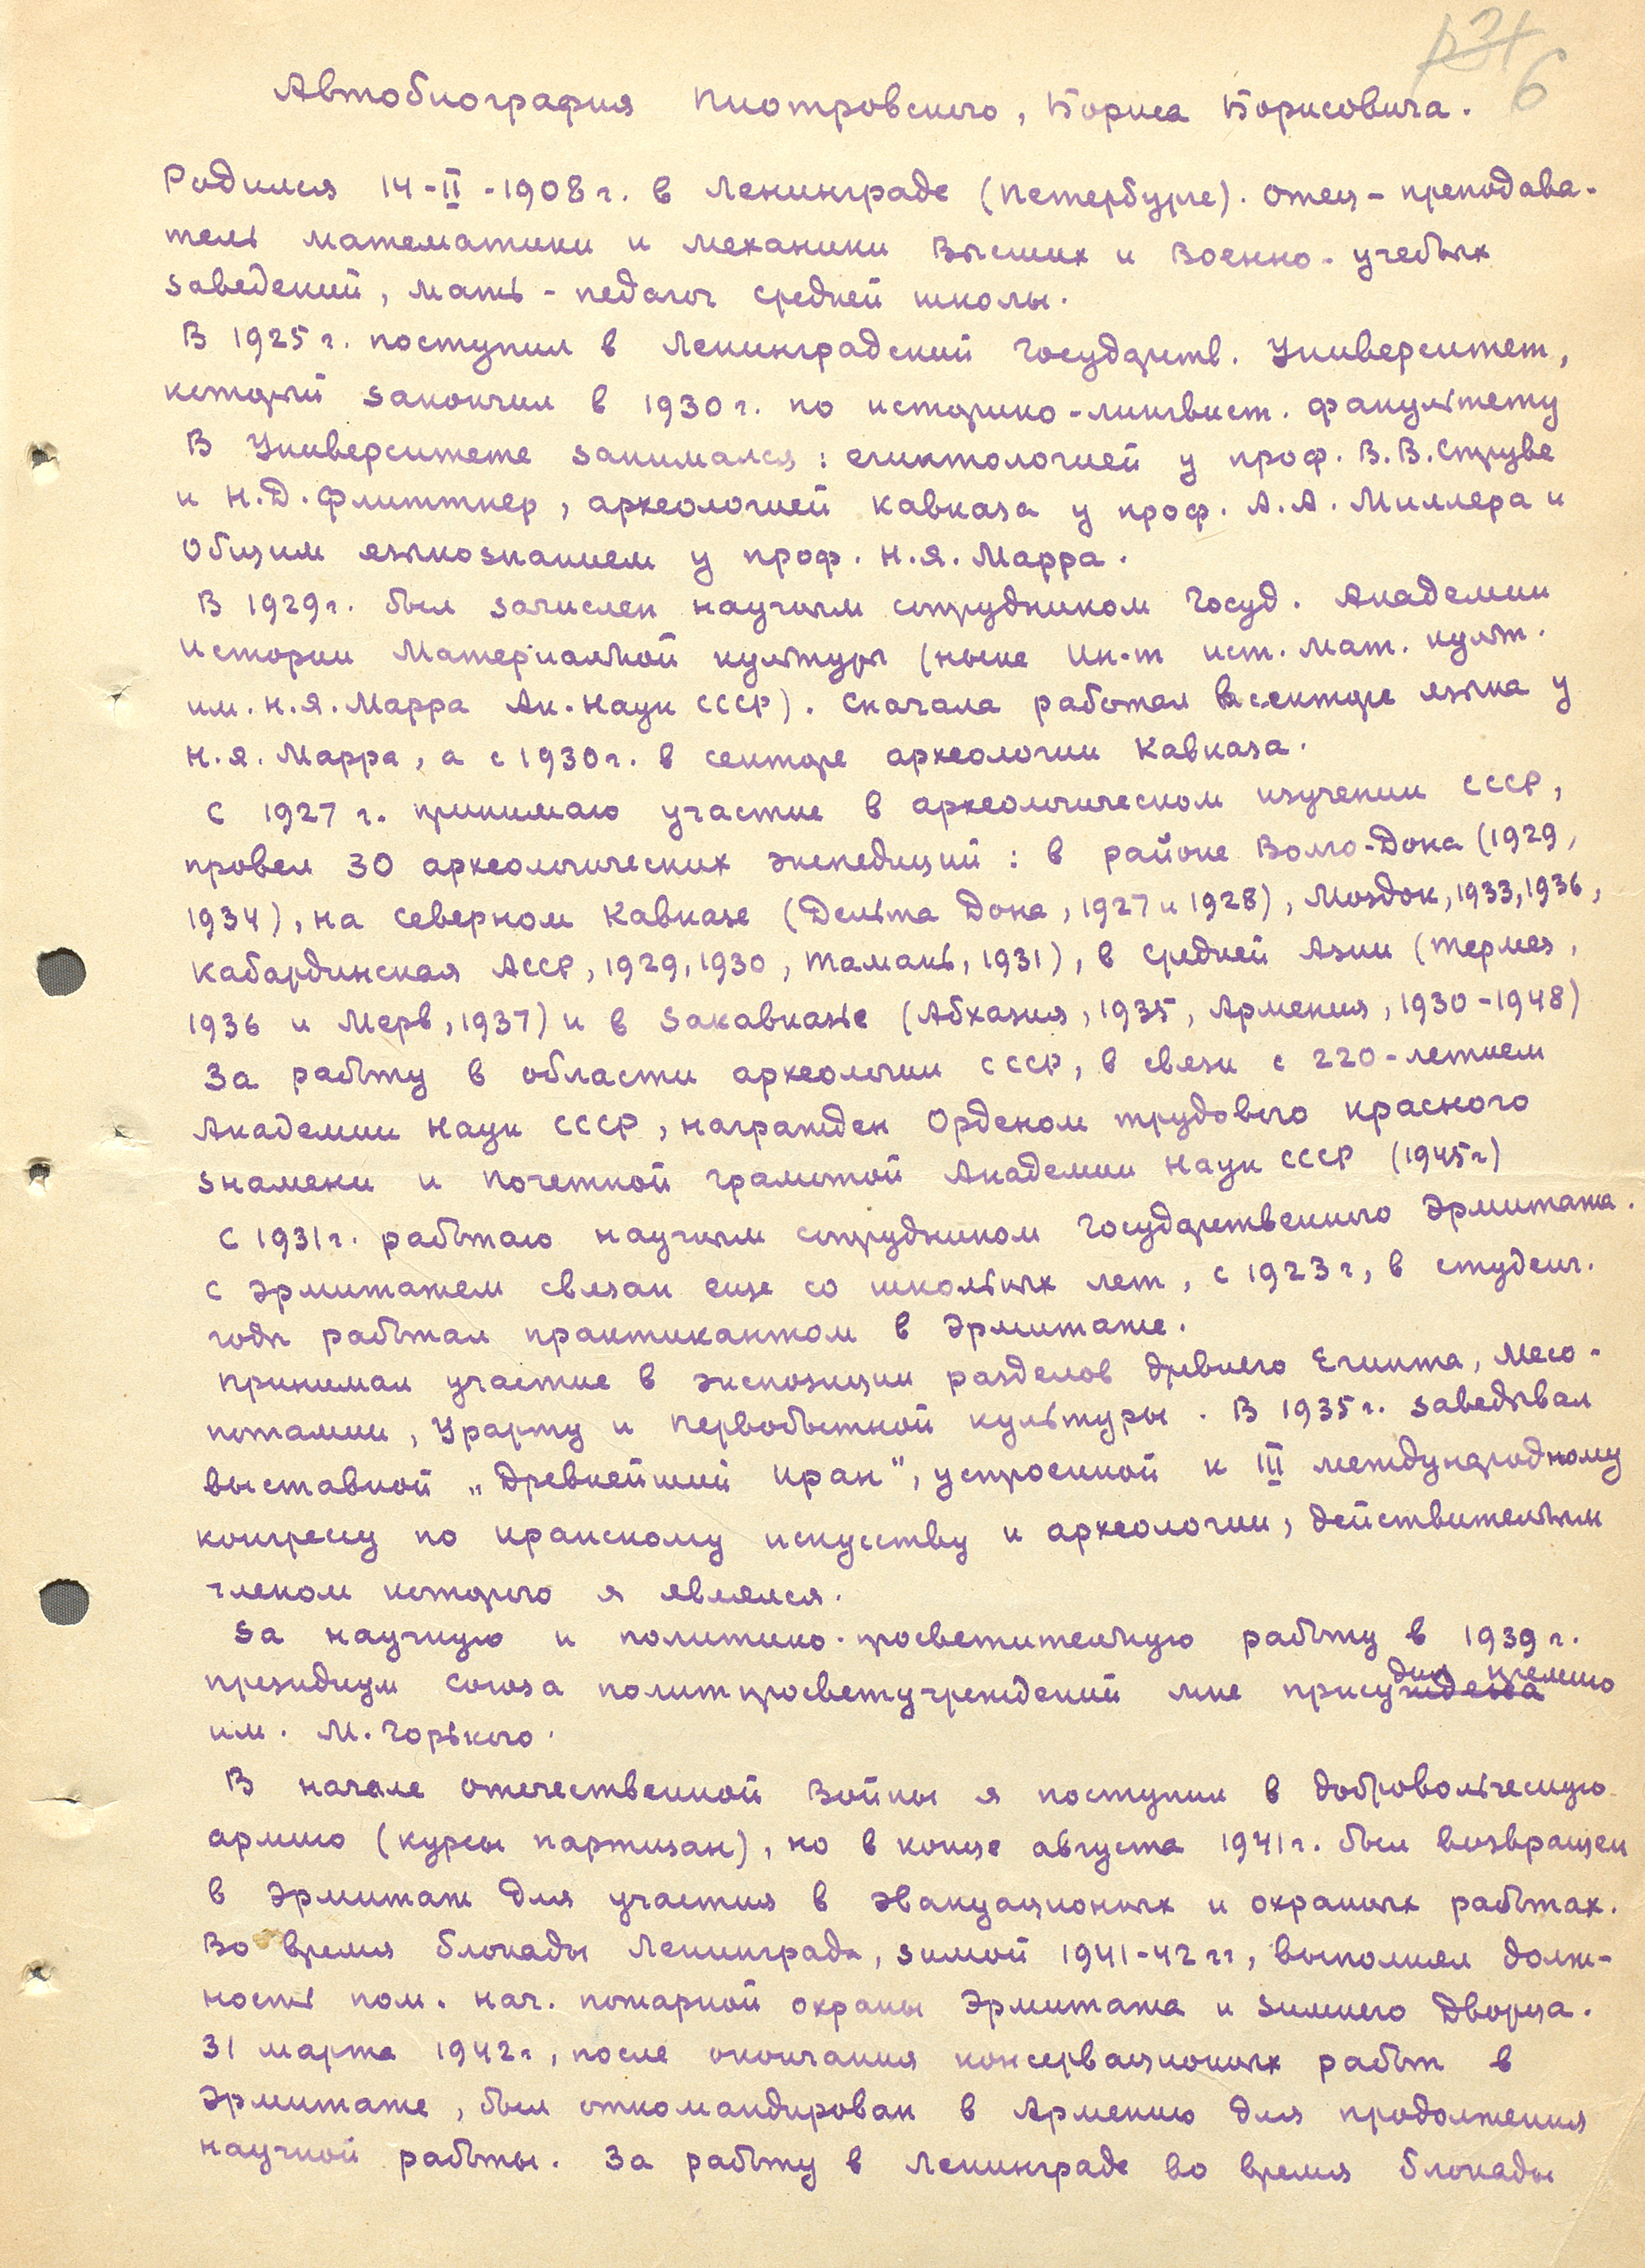 6
Автобиография Пиотровского, Бориса Борисовича.
Родился 14-II-1908 г. в Ленинграде (Петербурге). Отец – преподава-
тель математики и механики Высших и Военно-учебных
заведений, мать – педагог средней школы.
В 1925 г. поступил в Ленинградский Государств. Университет,
который закончил в 1930 г. по историко-лингвист. факультету
В Университете занимался: египтологией у проф. В.В. Струве
и Н.Д. Флиттнер, археологией Кавказа у проф. А.А. Миллера и
общим языкознанием у проф. Н.Я. Марра.
В 1929 г. был зачислен научным сотрудником Госуд. Академии
Истории Материальной культуры (ныне Ин-т ист. мат. культ.
им. Н.Я. Марра Ак. Наук СССР). Сначала работал в секторе языка у
Н.Я. Марра, а с 1930 г. в секторе археологии Кавказа.
С 1927 г. принимаю участие в археологическом изучении СССР,
провел 30 археологических экспедиций: в районе Волго-Дона (1929,
1934), на северном Кавказе (Дельта Дона, 1927 и 1928), Моздок, 1933, 1936,
Кабардинская АССР, 1929, 1930, Тамань, 1931), в Средней Азии (Термез,
1936 и Мерв, 1937) и в Закавказье (Абхазия, 1935, Армения, 1930-1948)
За работу в области археологии СССР, в связи с 220-летием
Академии Наук СССР, награжден Орденом трудового красного
знамени и почетной грамотой Академии Наук СССР (1945 г)
С 1931 г. работаю научным сотрудником Государственного Эрмитажа.
С Эрмитажем связан еще со школьных лет, с 1923 г, в студенч.
годы работал практикантом в Эрмитаже.
Принимал участие в экспозиции разделов древнего Египта, Месо-
потамии, Урарту и первобытной культуры. В 1935 г. заведывал
выставкой „Древнейший Иран“, устроенной к III международному
конгрессу по иранскому искусству и археологии, действительным
членом которого я являлся.
За научную и политико-просветительную работу в 1939 г.
президиум союза политпросветучреждений мне присудил премию
им. М. Горького.
В начале отечественной Войны я поступил в добровольческую
армию (курсы партизан), но в конце августа 1941 г. был возвращен
в Эрмитаж для участия в эвакуационных и охранных работах.
Во время блокады Ленинграда, зимой 1941-42 гг, выполнял долж-
ность пом. нач. пожарной охраны Эрмитажа и Зимнего Дворца.
31 марта 1942 г, после окончания консервационных работ в
Эрмитаже, был откомандирован в Армению для продолжения
научной работы. За работу в Ленинграде во время блокады